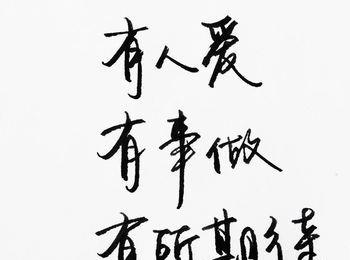 有人爱
有事做
有所期待